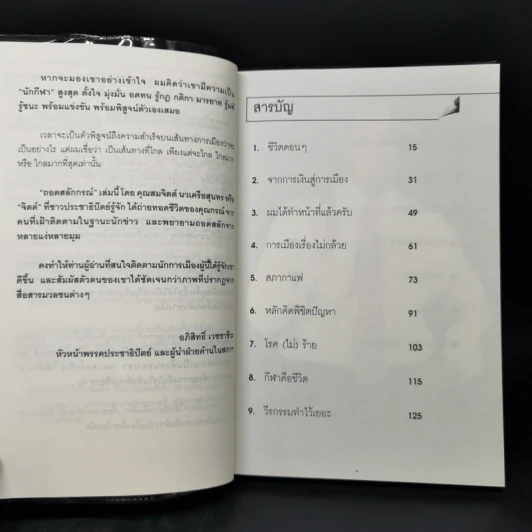 หากจะมองเขาอย่างเข้าใจ ผมคิดว่าเขามีความเป็น
"นักกีฬา" สูงสุด ตั้งใจ มุ่งมั่น อดทน รู้กฎ กติกา มารยาท รู้แพ้
รู้ชนะ พร้อมแข่งขัน พร้อมพิสูจน์ตัวเองเสมอ
เวลาจะเป็นตัวพิสูจน์ถึงความสำเร็จบนเส้นทางการเมืองว่าจะ
เป็นอย่างไร แต่ผมเชื่อว่า เป็นเส้นทางที่ไกล เพียงแต่จะไกล ไกลมาก
หรือ ไกลมากที่สุดเท่านั้น
"ถอดสลักกรณ์" เล่มนี้ โดย คุณสมจิตต์ นวเครือสุนทร หรือ
"จิตต์" ที่ชาวประชาธิปัตย์รู้จัก ได้ถ่ายทอดชีวิตของคุณกรณ์ จาก
คนที่เฝ้าติดตามในฐานะนักข่าว และพยายามถอดสลักจาก
หลายแง่หลายมุม
คงทำให้ท่านผู้อ่านที่สนใจติดตามนักการเมืองผู้นี้ได้รู้จักเขา
ดีขึ้น และสัมผัสตัวตนของเขาได้ชัดเจนกว่าภาพที่ปรากฏจาก
สื่อสารมวลชนต่างๆ
อภิสิทธิ์ เวชชาชีวะ
หัวหน้าพรรคประชาธิปัตย์ และผู้นำฝ่ายค้านในสภาฯ
สารบัญ
1. ชีวิตตอนๆ 15
2. จากการเงินสู่การเมือง 31
3. ผมได้ทำหน้าที่แล้วครับ 49
4. การเมืองเรื่องไม่กล้วย 61
5. สภากาแฟ 73
6. หลักคิดพิชิตปัญหา 91
7. โรค (ไม่) ร้าย 103
8. กีฬาคือชีวิต 115
9. วีรกรรมทำไว้เยอะ 125